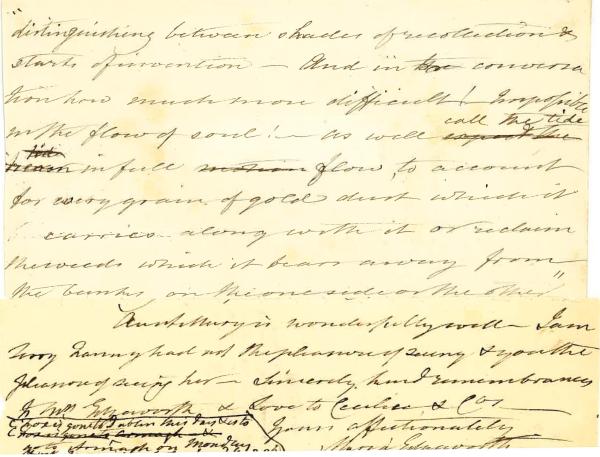 distinguishing between shades of recollection &
starts of invention — And in the conversa
tion how much more difficult! Impossible
in the flow of soul! — as well expect the
call the tide
tid
in full motion flow, to account
for every grain of gold dust which it
carries along with it or reclaim
the weeds which it bears away from
the banks on the one side or the other"
Aunt Mary is wonderfully well — I am
sorry Fanny had not the pleasure of seeing & you the
pleasure of seeing her — Sincerely kind remembrances
to Mrs Edgeworth & Love to Cecilia & Co
gone to Dublin this day & is to
Yours affectionately
on Monday
Maria Edgeworth